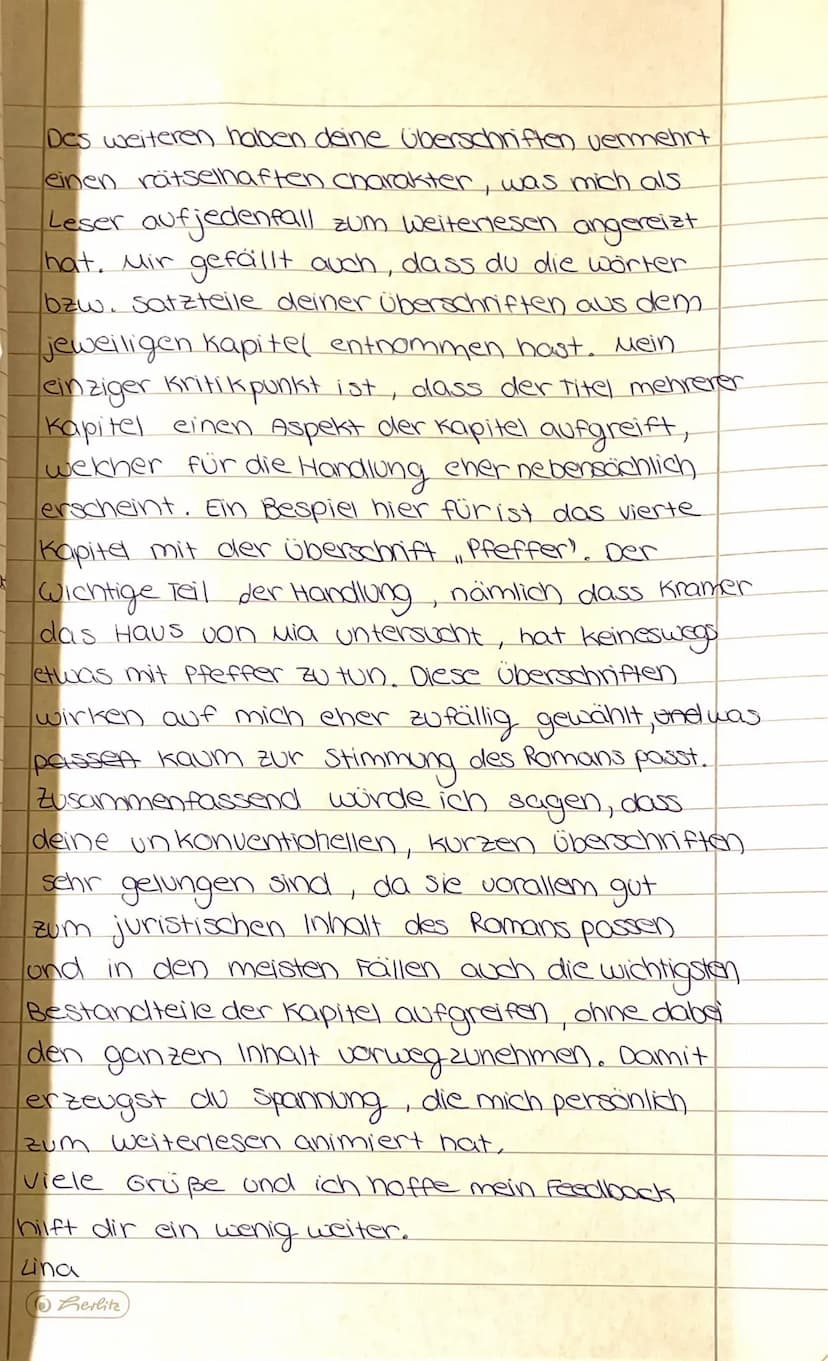 Des weiteren haben deine Überschriften vermehrt
einen rätselhaften charakter, was mich als
Leser aufjedenfall zum weiterlesen angereizt
hat. Mir gefällt auch, dass du die wörter
bzw. Satzteile deiner Überschriften aus dem
jeweiligen Kapitel entnommen hast. Mein
einziger Kritikpunkt ist, dass der Titel mehrerer
Kapitel einen Aspekt der Kapitel aufgreift,
welcher für die Handlung eher nebensächlich
erscheint. Ein Bespiel hier für ist das vierte
Kapitel mit der Überschrift „Pfeffer". Der
wichtige Teil der Handlung, nämlich dass Kramer
das Haus von Mia untersucht, hat keineswegs
etwas mit Pfeffer zu tun. Diese Überschriften
wirken auf mich eher zufällig gewählt, und was
passen kaum zur Stimmung des Romans passt.
Zusammenfassend würde ich sagen, dass
deine unkonventionellen, kurzen Überschriften
sehr gelungen sind, da sie vorallem gut
zum juristischen Inhalt des Romans passen
und in den meisten Fällen auch die wichtigsten
Bestandteile der Kapitel aufgreifen, ohne dabei
den ganzen Inhalt vorwegzunehmen. Damit
erzeugst du Spannung, die mich persönlich
zum weiterlesen animiert hat.
viele Grüße und ich hoffe mein Feedback
hilft dir ein wenig weiter.
Lina
herlitz